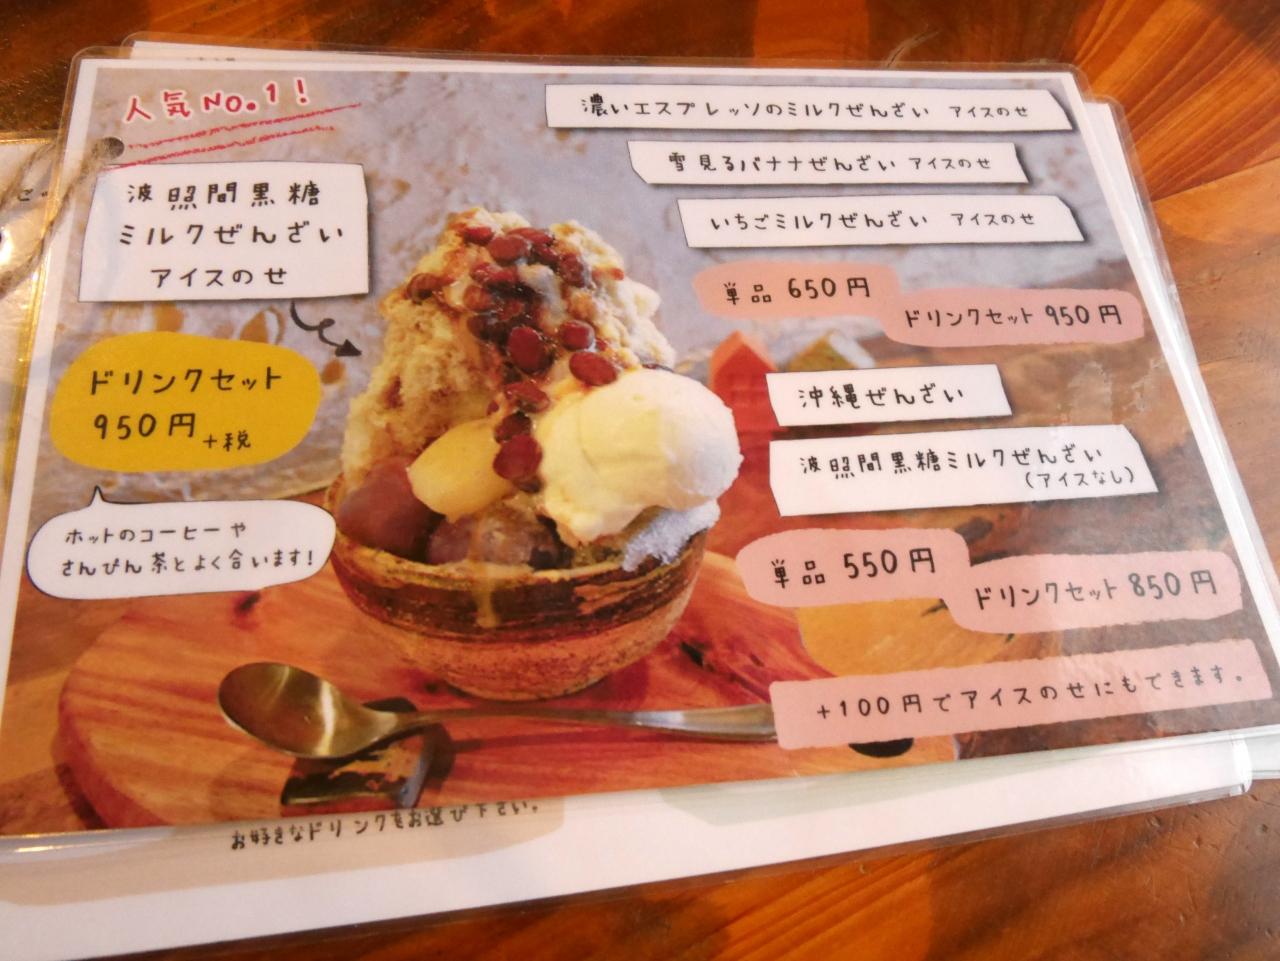 人気NO.1!
波照間黒糖
ミルクぜんざい
アイスのせ
ドリンクセット
950円+税
ホットのコーヒーや
さんぴん茶とよく合います!
濃いエスプレッソのミルクぜんざい アイスのせ
雪見るバナナぜんざい アイスのせ
いちごミルクぜんざい アイスのせ
単品 650円
ドリンクセット 950円
沖縄ぜんざい
波照間黒糖ミルクぜんざい
(アイスなし)
単品 550円
ドリンクセット 850円
+100円でアイスのせにもできます。
お好きなドリンクをお選び下さい。